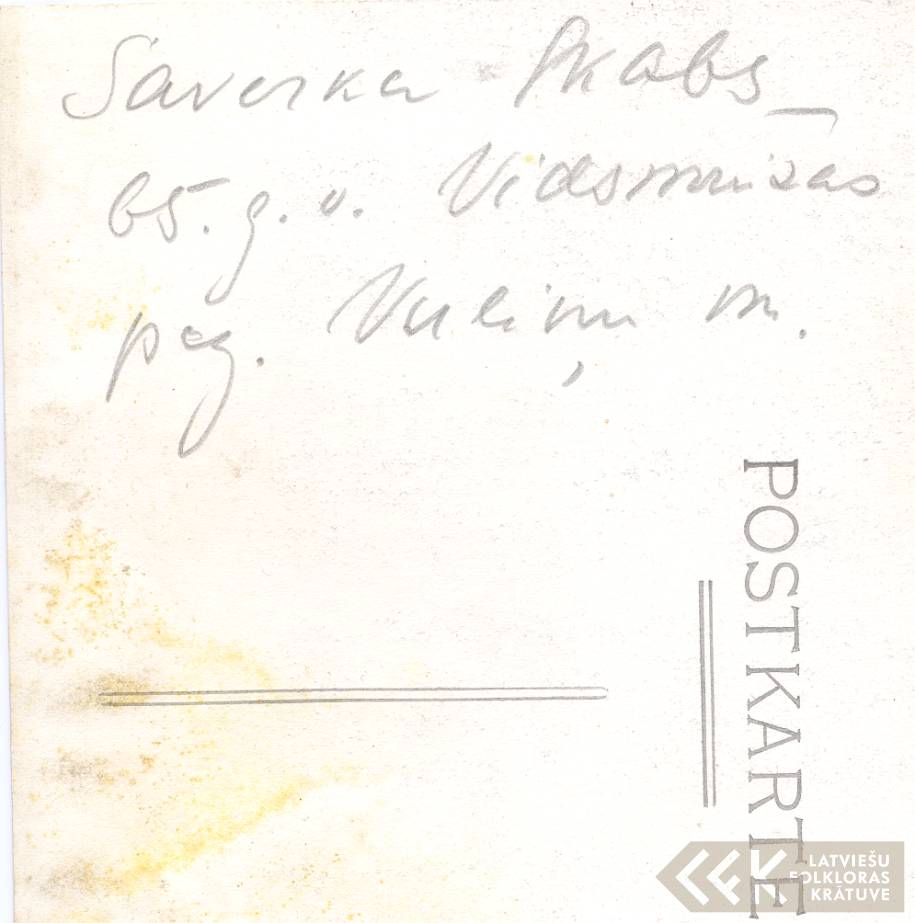 Saverka Skabs_
65. g. v. Vidsmuižas
pag. Vuliņu m.
POSTKARTE
LATVIEŠU
FOLKLORAS
KRĀTUVE